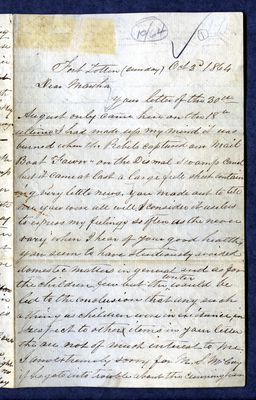 1964
1
Fort Totten (Sunday) Oct 2d 1864
Dear Martha
Your letter of the 30th
August only came here on the 18th
ultimo I had made up my mind it was
burned when the Rebels captured our Mail
Boat "Fawn" on the Dismal Swamp Canal
but it came at last a large full sheet contain
ing very little news. You made out to tell
me you were all well, I consider it useless
to express my feelings so often as they never
vary when I hear of your good health,
you seem to have studiously avoided
domestic matters in general and as for
the children, you but
led to the conclusion that any such
a thing as children were in existence, in
respect to other items in your letter
they are not of much interest to me,
I am extremely sorry for
if he gets into trouble about this